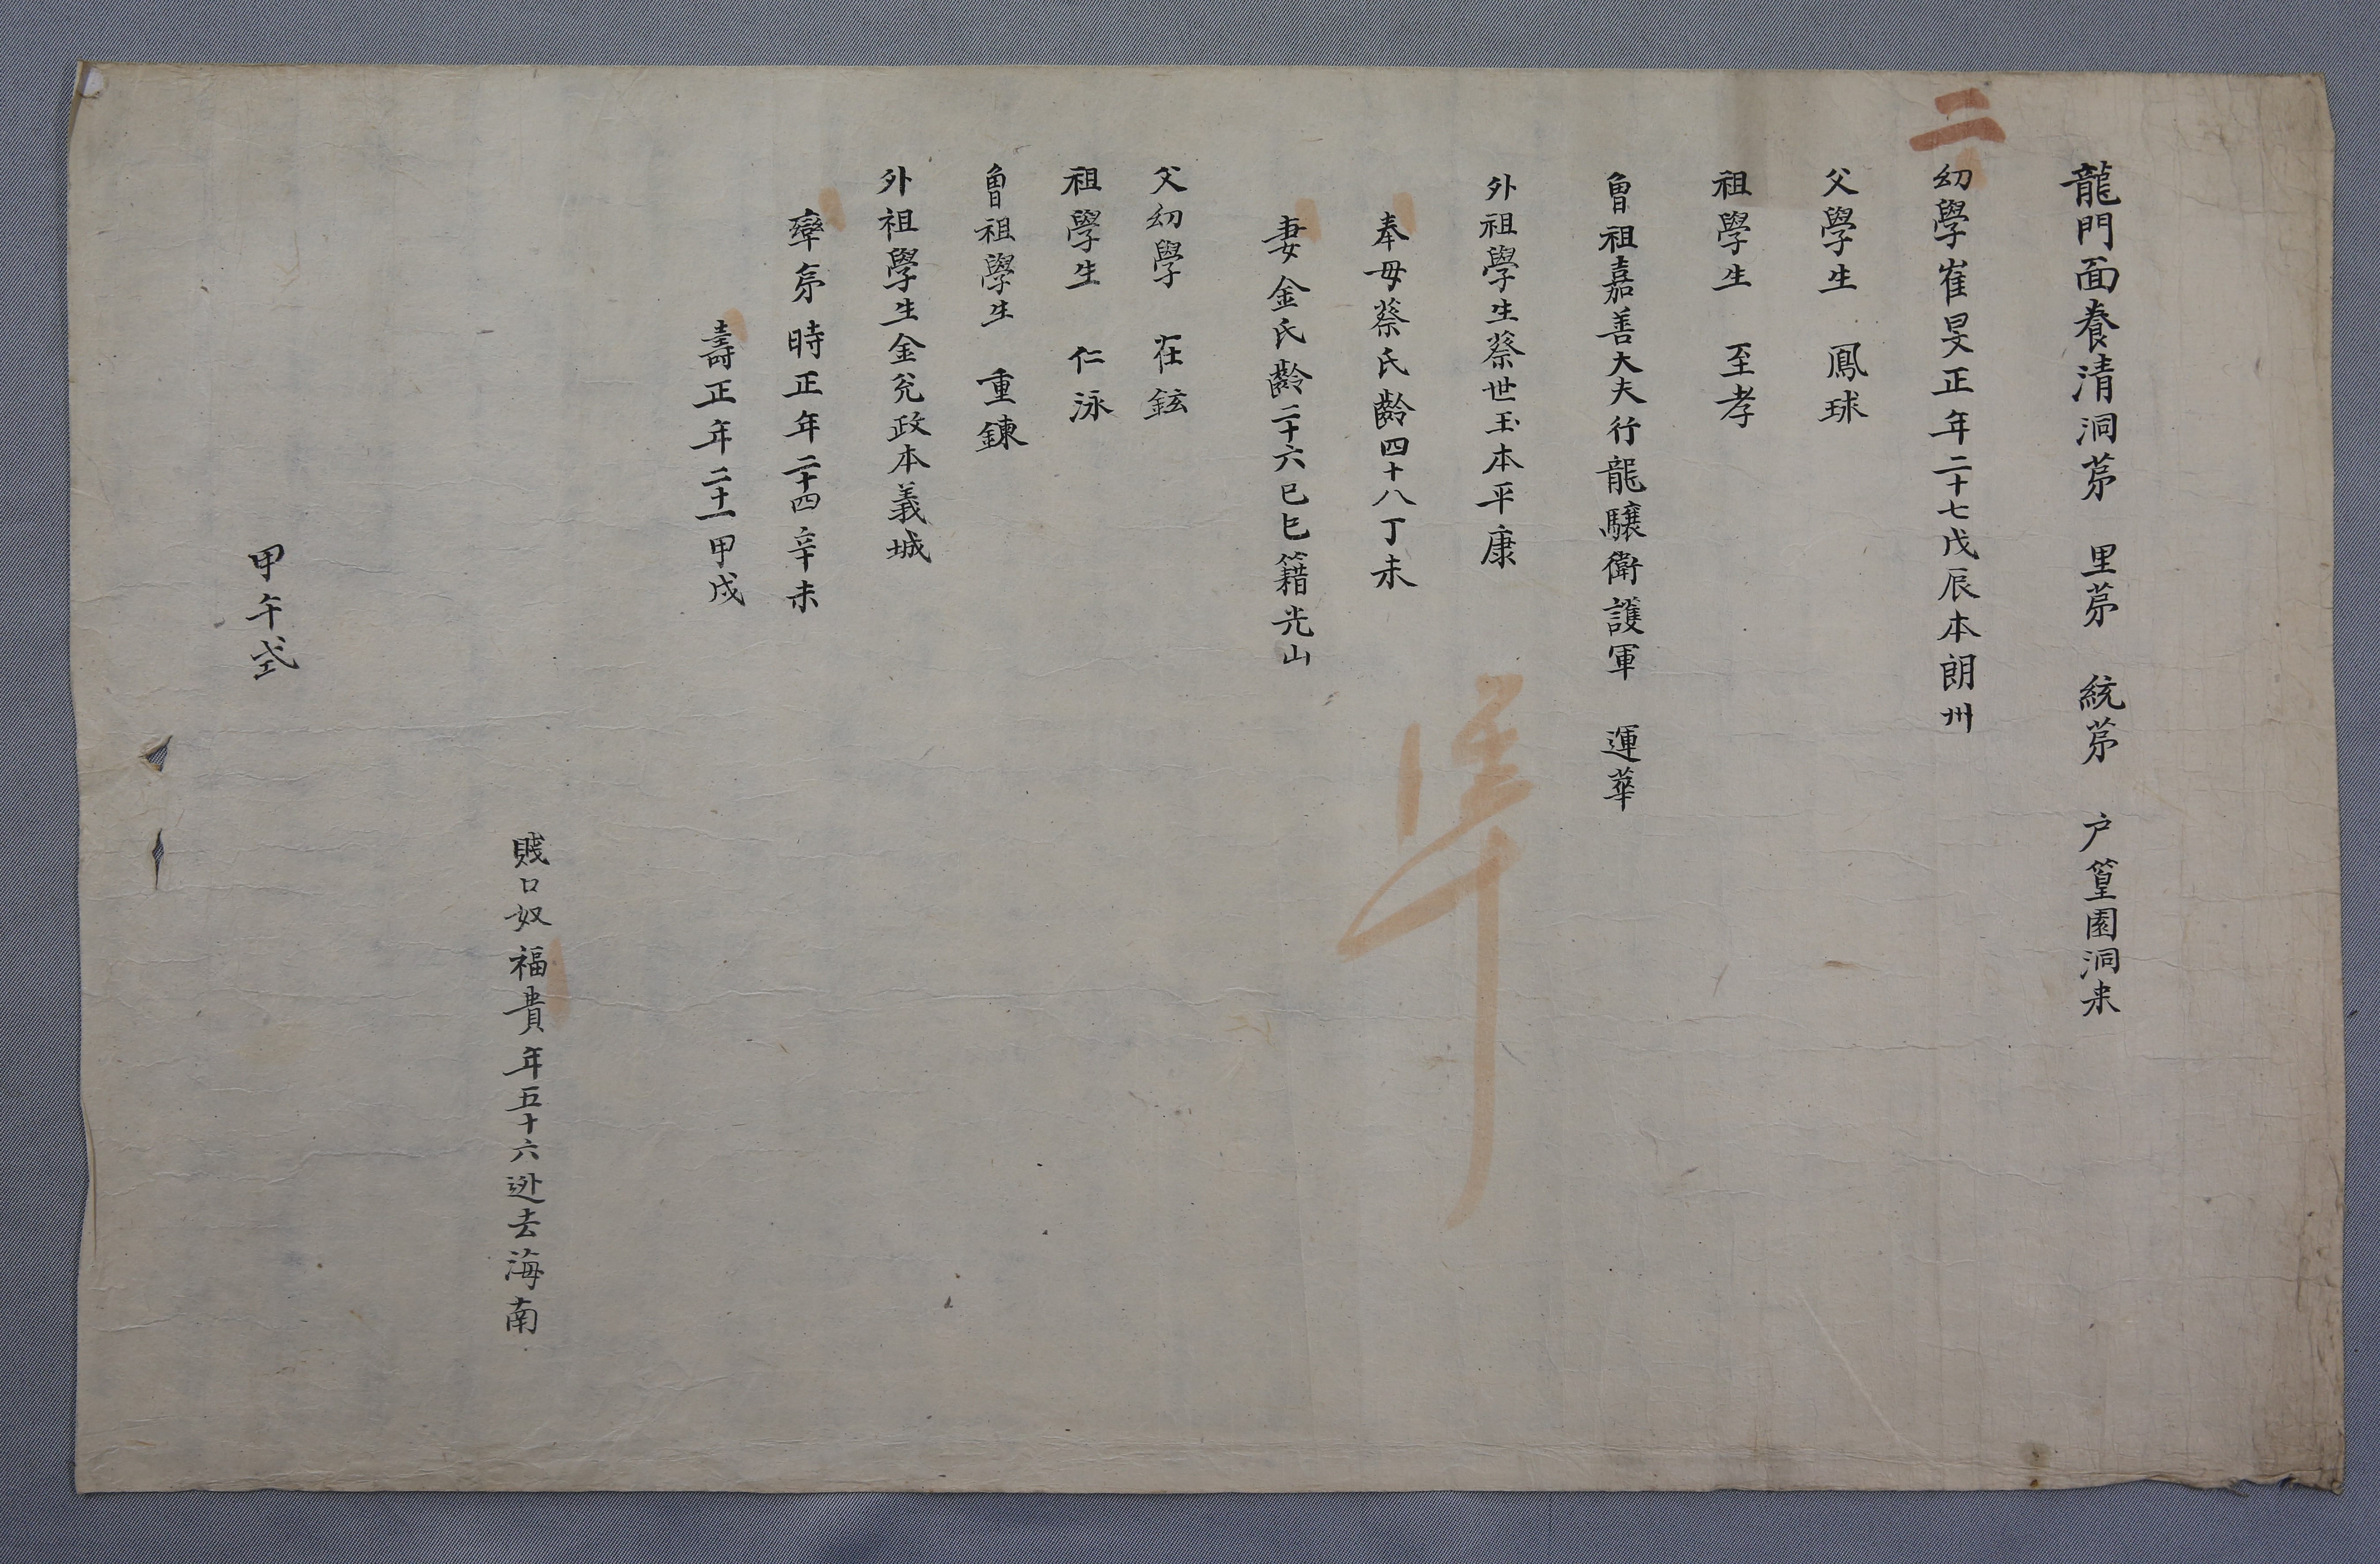 龍門面養清洞苐 里苐 統苐 户篁園洞来
二
幼學崔旻正年二十七戊辰本朗州
父學生 鳳球
祖學生 至孝
曾祖嘉善大夫行龍驤衛護軍 運華
外祖學生蔡世玉本平康
奉母蔡氏齡四十八丁未
妻金氏齡二十六己巳籍光山
父幼學 在鉉
祖學生 仁泳
曾祖學生 重鍊
外祖學生金兊政本義城
率弟時正年二十四辛未
壽正年二十一甲戌
準
賤口奴福貴年五十六逃去海南
甲午式